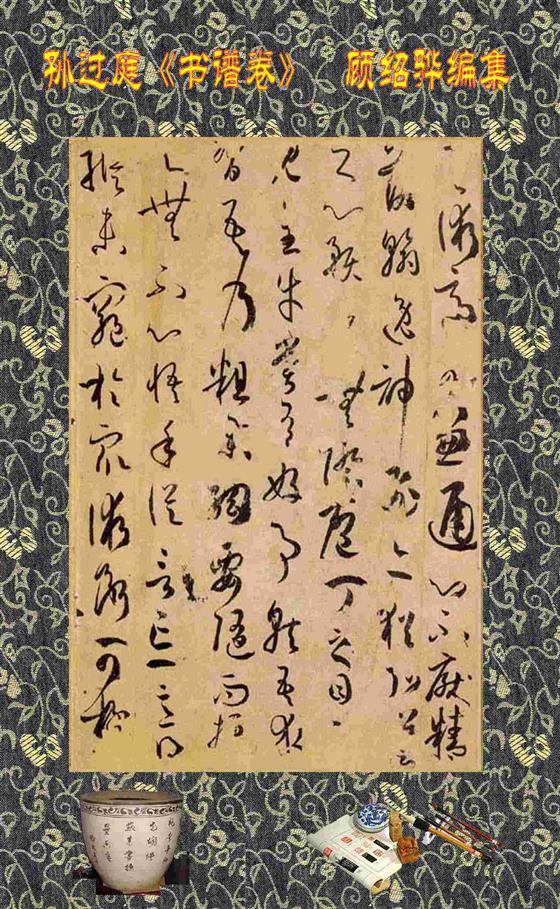 孙过庭《书谱卷》 顾绍骅编集
心不厭精
翰逸神飛亦猶弘羊之
心預乎無際庖丁之目
不見全牛嘗有好事就吾求
習吾乃粗舉綱要隨而授
之無不心悟手從言忘意得
縱未窺於衆術斷可極